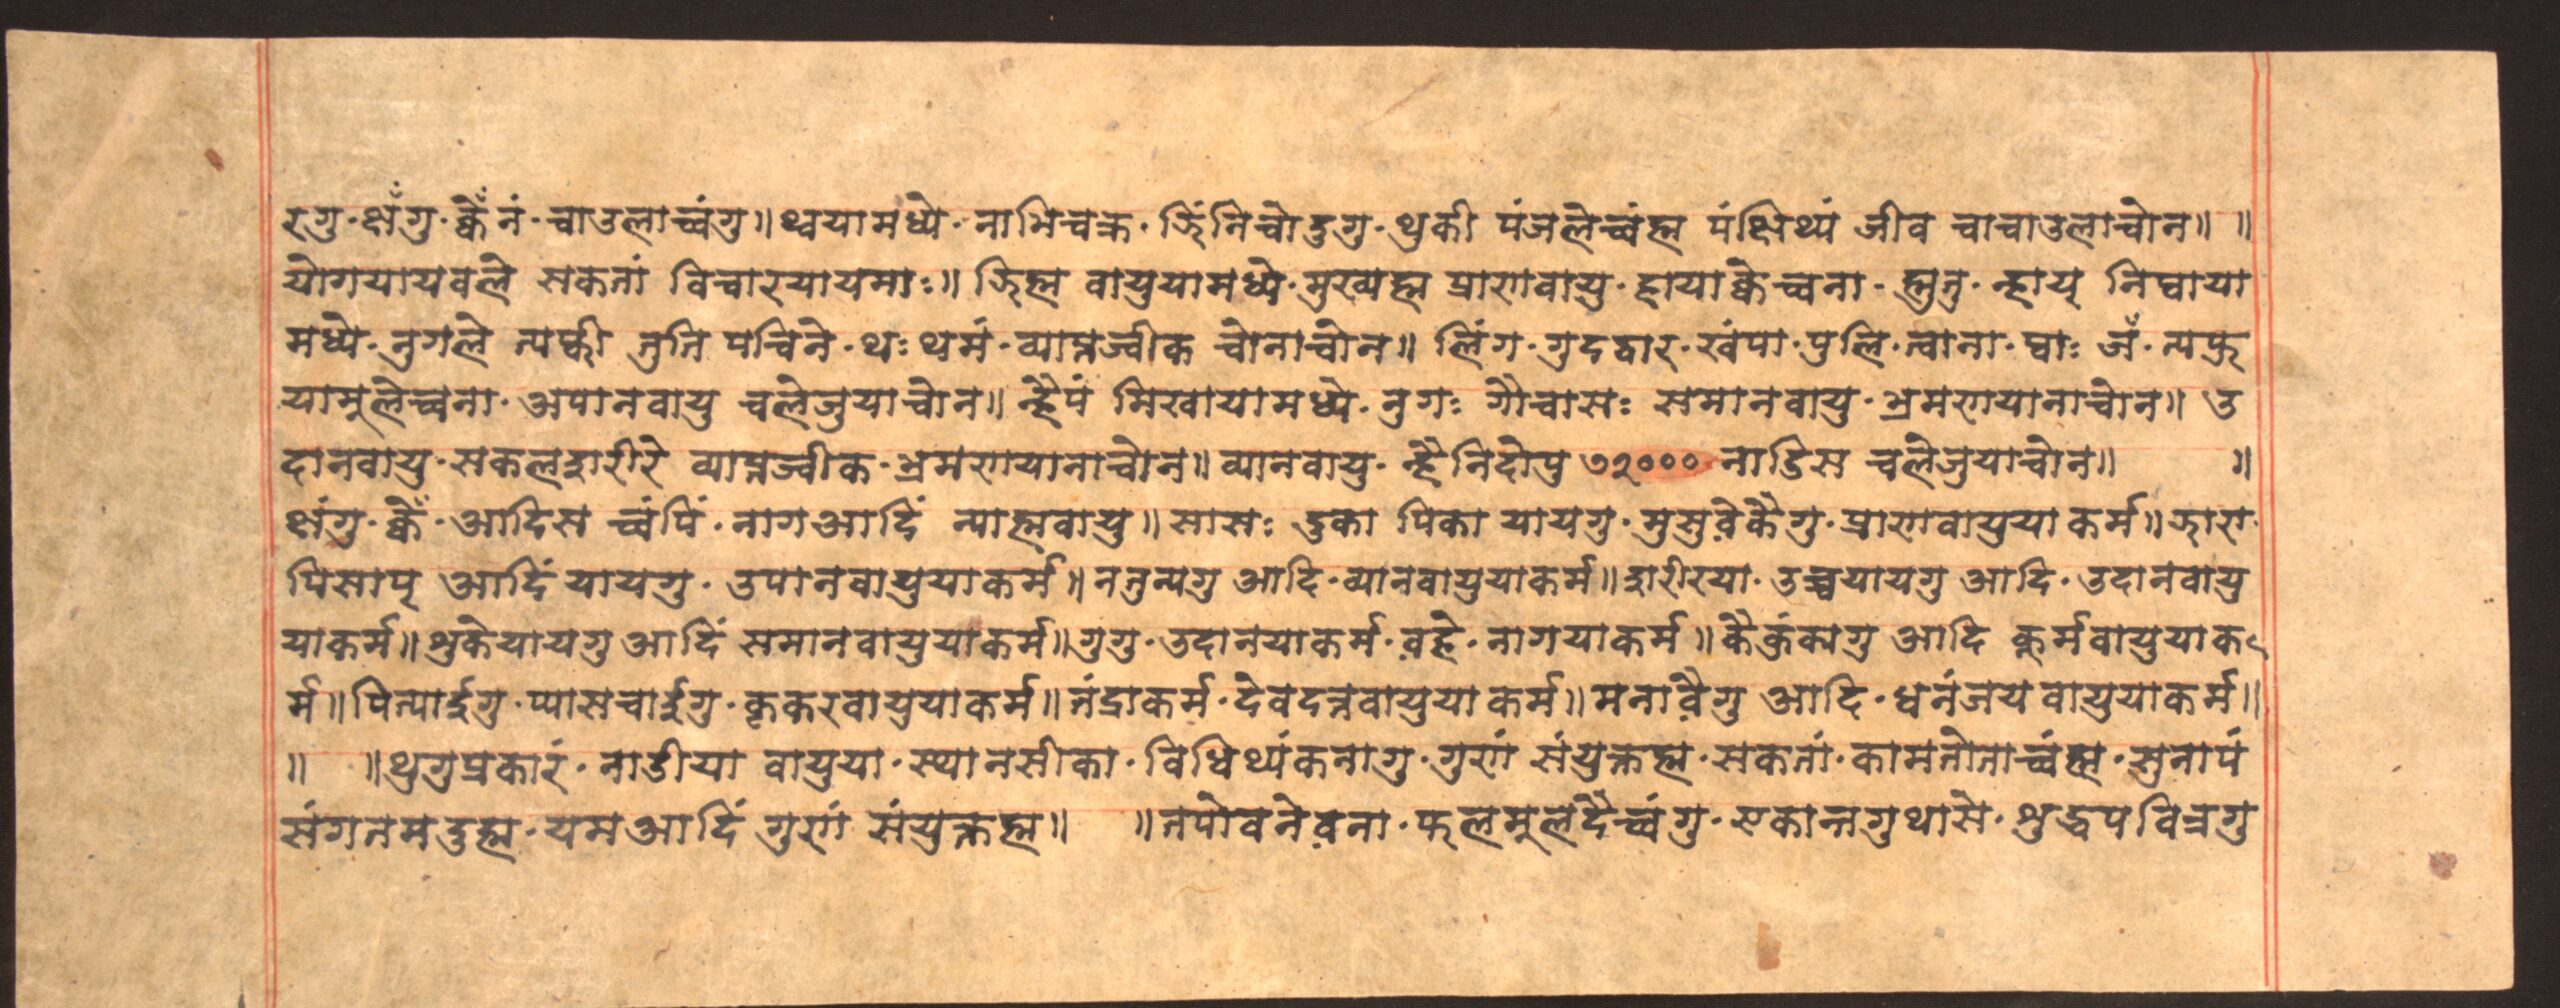 रगु॰क्षँगु॰क्वेँनं॰चाउलाच्वंगु॥थ्वयामध्ये॰नाभिचक्र॰झिंनिचोडुगु॰थुकी पंजलेच्वंह्म पंक्षिथ्यं जीव चाचाउलाचोन॥ ॥
योगयायवले सकतां विचारयायमाः॥ झिह्म वायुयामध्ये॰मुख्यह्म प्राणवायु॰ह्नायाक्वेच्वना॰ह्मुतु॰न्हाय् निघ्वाया
मध्ये॰नुगले त्यफी तुति पचिने॰थः थमं॰व्याप्तज्वीक चोनाचोन॥ लिंग॰गुदद्वार॰खंपा॰पुलि॰त्वाना॰घ्वाः जँ॰त्यफु
यामुलेच्वना॰अपानवायु चलेजुयाचोन॥ न्हैपं मिखायामध्ये॰नुगः गौचासः समानवायु॰भ्रमणयानाचोन॥ उ
दानवायु॰सकलशरीरे व्याप्तज्वीक॰भ्रमणयानाचोन॥ व्यानवायु॰न्हैनिदोपु ७२००० नाडिस चलेजुयाचोन॥ ॥
क्षंगु॰क्वेँ॰आदिस च्वंपिं॰नागआदिं न्याह्मवायु॥ सासः दुका पिका यायगु॰मुसुवेकैगु॰प्राणवायुयाकर्म॥झारा
पिसाप् आदिं यायगु॰उपानवायुयाकर्म॥ ननुन्यगु आदि॰व्यानवायुयाकर्म॥ शरीरया॰उच्चयायगु आदि॰उदानवायु
याकर्म॥ भुकेयायगु आदिं समानवायुयाकर्म॥गुगु॰उदानयाकर्म॰वहे॰नागयाकर्म॥ कैकुंकागु आदि कूर्मवायुयाक
र्म॥ पित्यार्इगु॰प्यासचार्इगु॰कृकरवायुयाकर्म॥ तंद्राकर्म॰देवदत्तवायुयाकर्म॥ मनावैगु आदि॰धनंजयवायुयाकर्म॥
॥ ॥थुगुप्रकारं॰नाडीया वायुया॰स्थानसीका॰विधिथ्यंकनागु॰गुणं संयुक्तह्म॰सकतां॰कामतोताच्वंह्म॰सुनापं
संगतमदुह्म॰यमआदिं गुणं संयुक्तह्म॥ ॥तपोवनेवना॰फलमुलदैच्वंगु॰एकान्तगुथासे॰शुद्धपवित्रगु